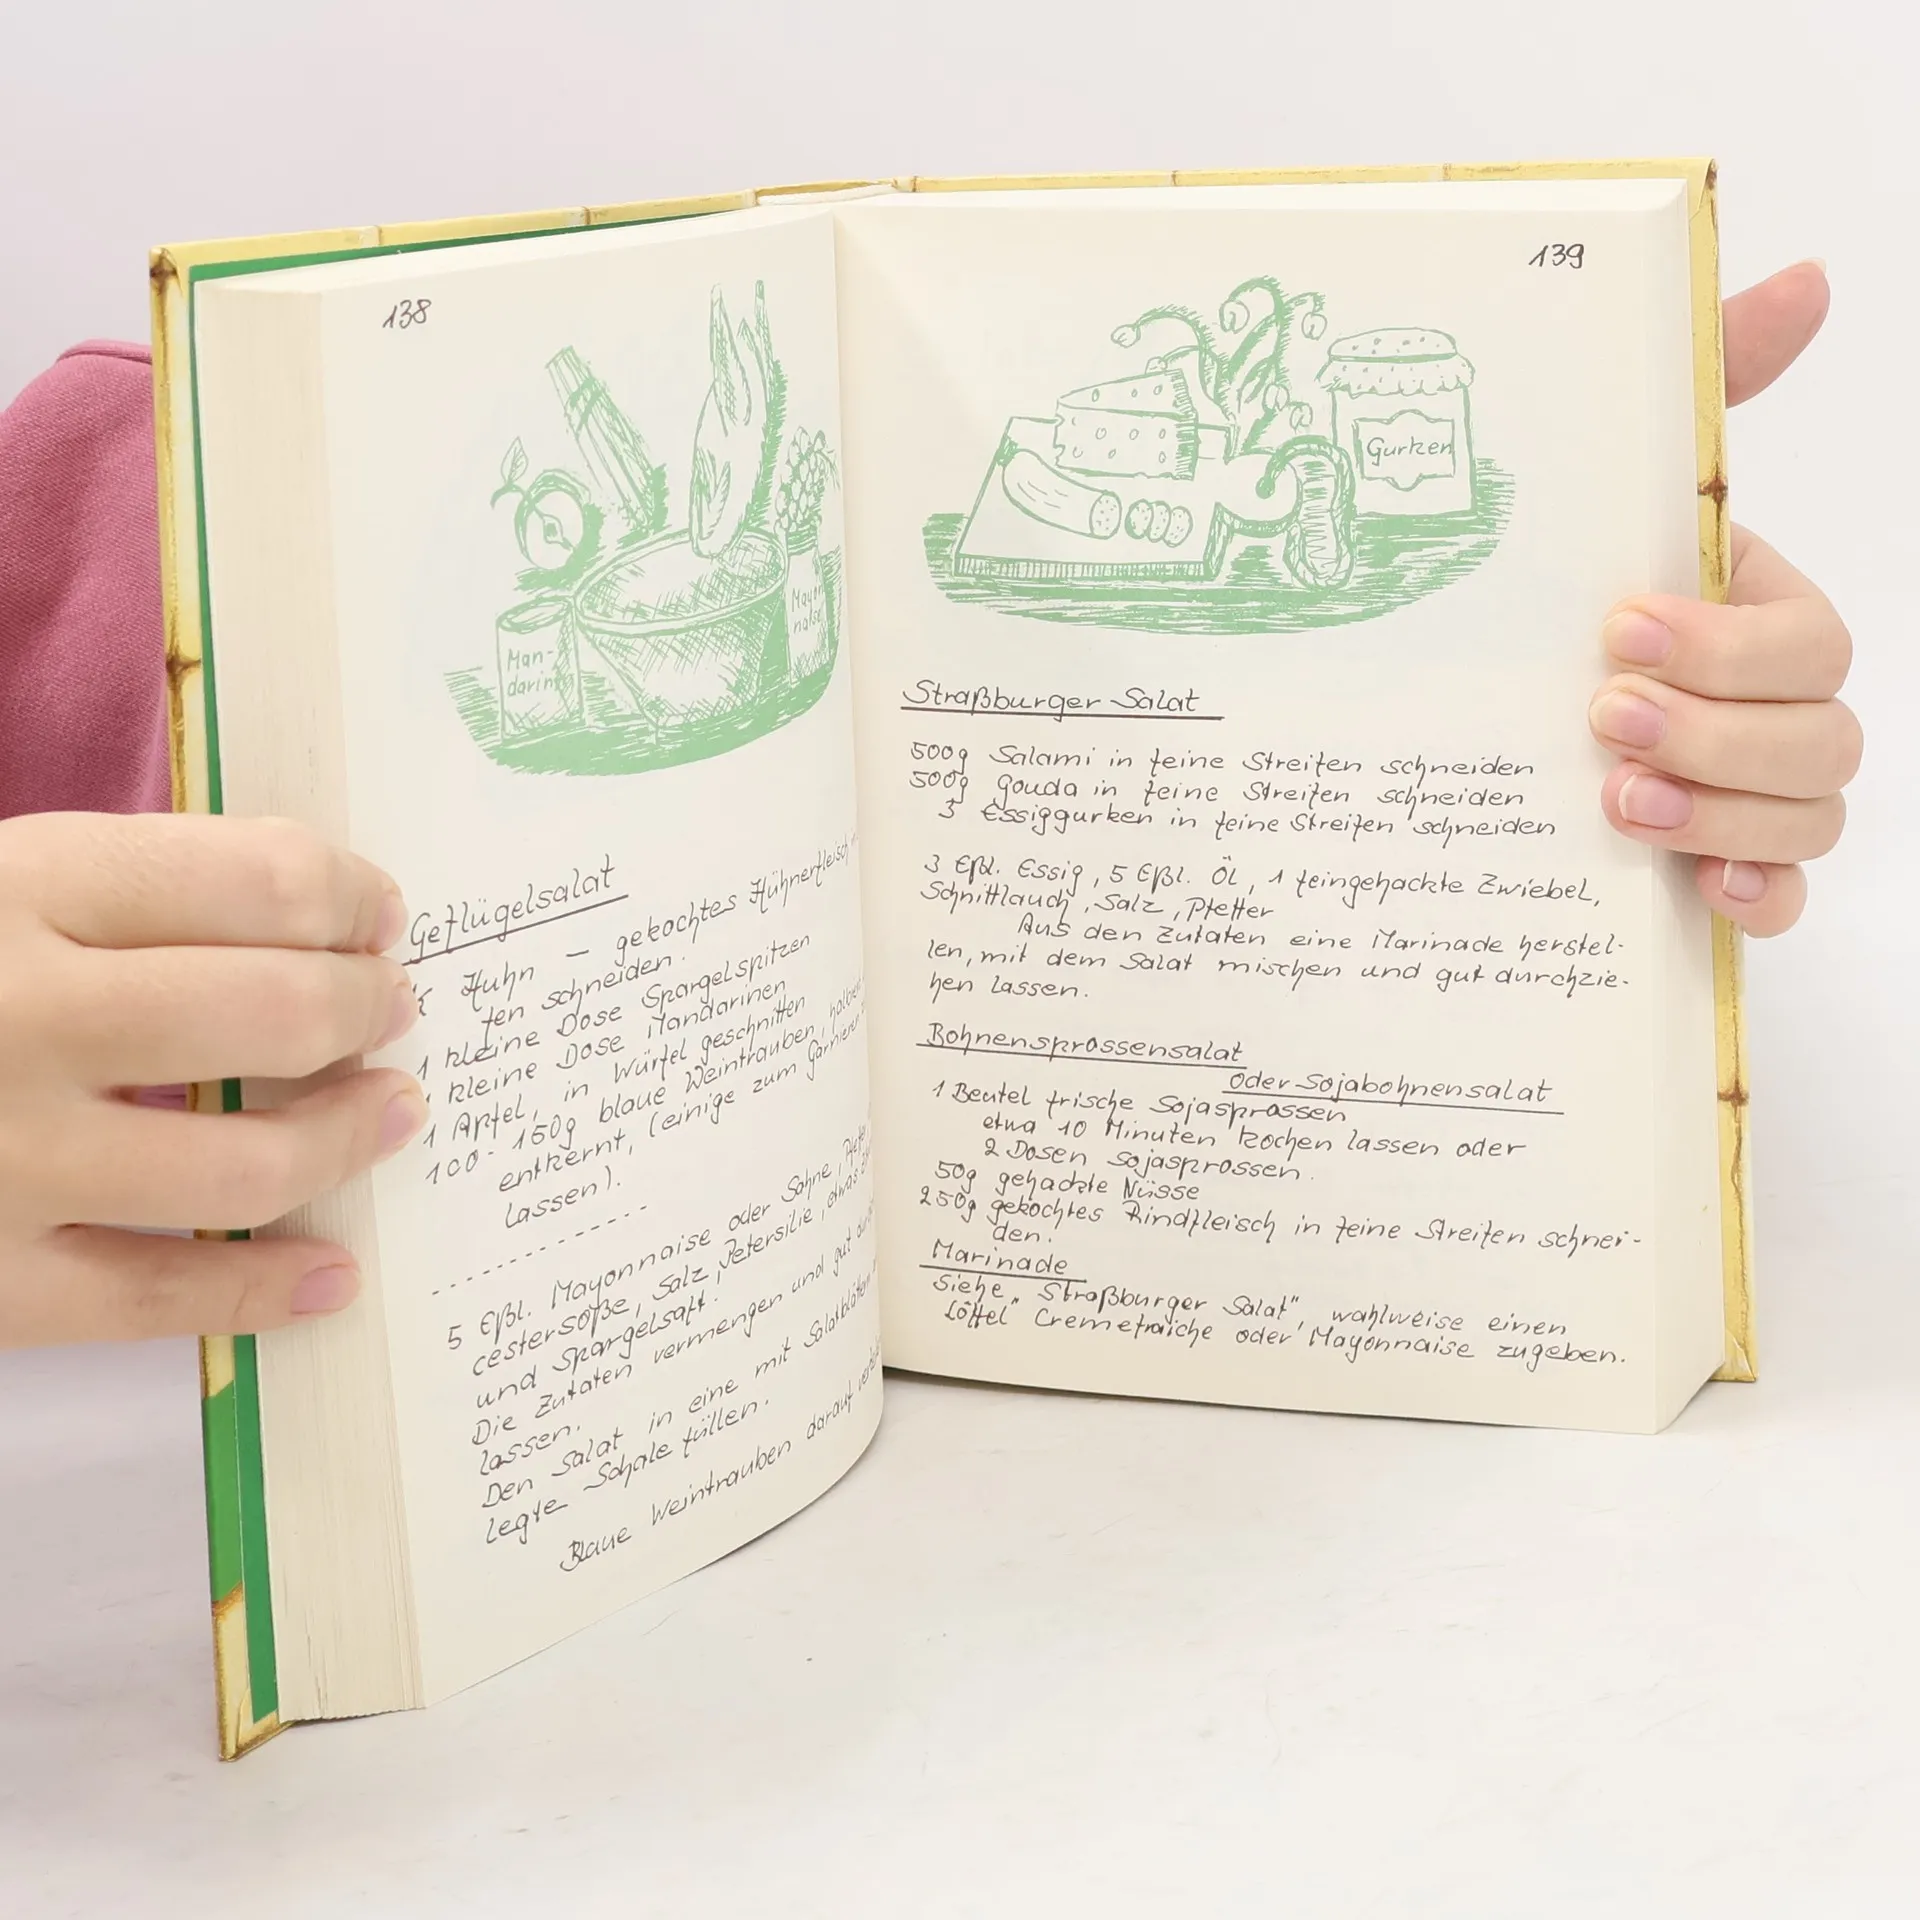 138
Man-
darin
Mayon
naise
Geflügelsalat
Huhn – gekochtes Hühnerfleisch
ten schneiden.
1 kleine Dose Spargelspitzen
1 kleine Dose Mandarinen
1 Apfel, in Würfel geschnitten
100 - 150g blaue Weintrauben, halbiert
entkernt, (einige zum Garnieren
lassen).
5 Eßl. Mayonnaise oder Sahne, Pfeffer
cestersoße, Salz, Petersilie, etwas
und Spargelsaft.
Die Zutaten vermengen und gut
lassen.
Den Salat in eine mit Salatblättern
legte Schale füllen.
Blaue Weintrauben darauf
139
Gurken
Straßburger Salat
500g Salami in feine Streifen schneiden
500g Gouda in feine Streifen schneiden
3 Essiggurken in feine Streifen schneiden
3 Eßl. Essig, 5 Eßl. Öl, 1 feingehackte Zwiebel,
Schnittlauch, Salz, Pfeffer
Aus den Zutaten eine Marinade herstel-
len, mit dem Salat mischen und gut durchzie-
hen lassen.
Bohnensprossensalat
oder Sojabohnensalat
1 Beutel frische Sojasprossen
etwa 10 Minuten kochen lassen oder
2 Dosen Sojasprossen.
50g gehackte Nüsse
250g gekochtes Rindfleisch in feine Streifen schnei-
den.
Marinade
Siehe „Straßburger Salat", wahlweise einen
Löffel Cremefraiche oder Mayonnaise zugeben.